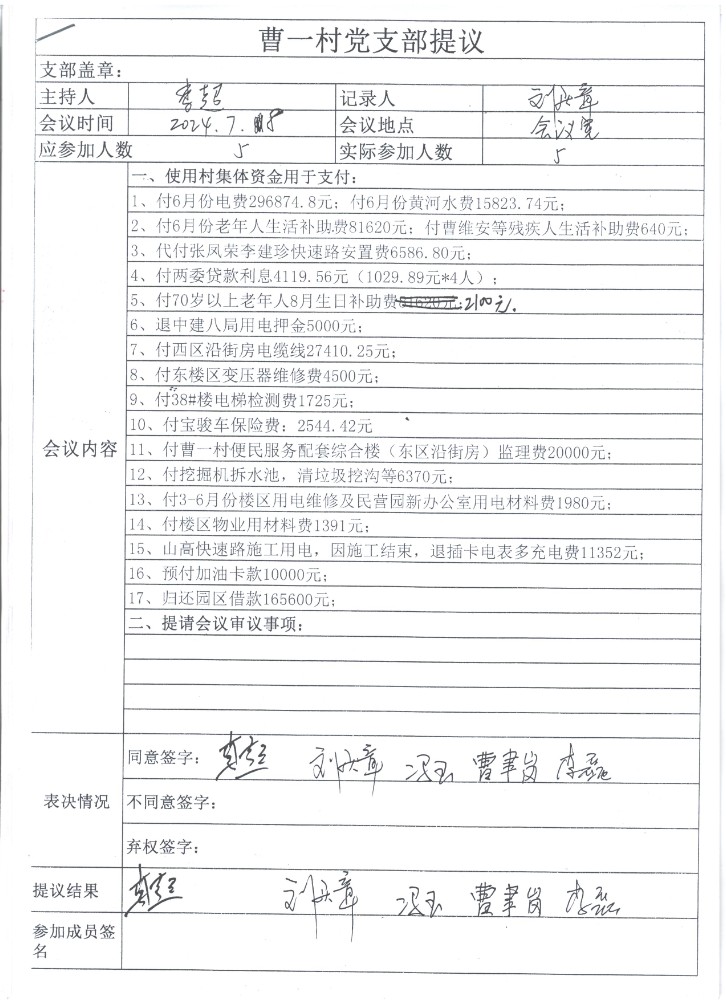 曹一村党支部提议
支部盖章：
主持人 李超 记录人
会议时间 2024.7.8 会议地点 会议室
应参加人数 5 实际参加人数 5
一、使用村集体资金用于支付：
1、付6月份电费296874.8元；付6月份黄河水费15823.74元；
2、付6月份老年人生活补助费81620元；付曹维安等残疾人生活补助费640元；
3、代付张凤荣李建珍快速路安置费6586.80元；
4、付两委贷款利息4119.56元（1029.89元*4人）；
5、付70岁以上老年人8月生日补助费81620元；2100元.
6、退中建八局用电押金5000元；
7、付西区沿街房电缆线27410.25元；
8、付东楼区变压器维修费4500元；
9、付38#楼电梯检测费1725元；
10、付宝骏车保险费：2544.42元
会议内容
11、付曹一村便民服务配套综合楼（东区沿街房）监理费20000元；
12、付挖掘机拆水池，清垃圾挖沟等6370元；
13、付3-6月份楼区用电维修及民营园新办公室用电材料费1980元；
14、付楼区物业用材料费1391元；
15、山高快速路施工用电，因施工结束，退插卡电表多充电费11352元；
16、预付加油卡款10000元；
17、归还园区借款165600元；
二、提请会议审议事项：
同意签字： 李超 冯玉 李磊
表决情况 不同意签字：
弃权签字：
提议结果 李超 冯玉 李磊
参加成员签
名